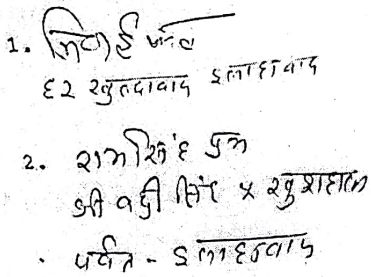 1. सिपाई लाल
६२ खुलदाबाद इलाहाबाद
2. रामसिंह पुत्र
श्री बद्री सिंह खुशहाल
पर्वत - इलाहाबाद